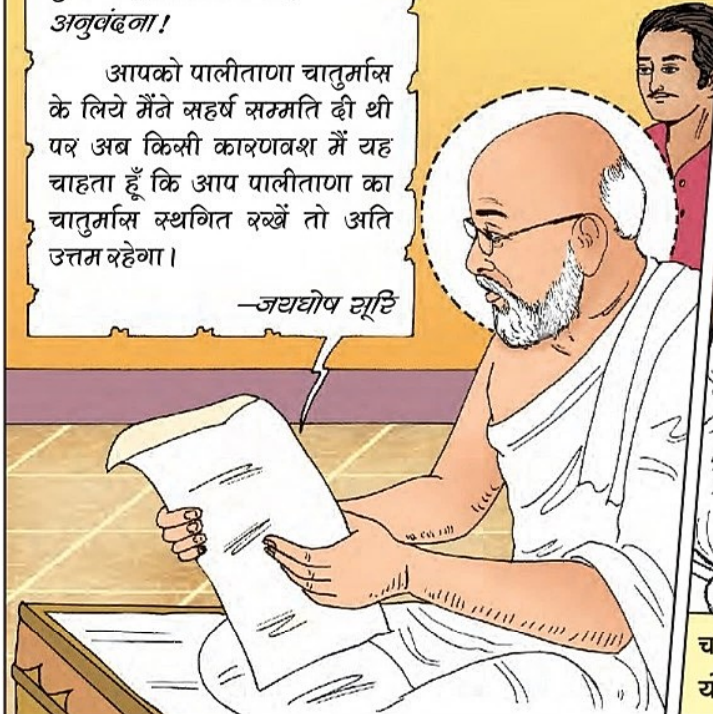 अनुवंदना!
आपको पालीताणा चातुर्मास
के लिये मैंने सहर्ष सम्मति दी थी
पर अब किसी कारणवश मैं यह
चाहता हूँ कि आप पालीताणा का
चातुर्मास स्थगित रखें तो अति
उत्तम रहेगा।
—जयघोष सूरि